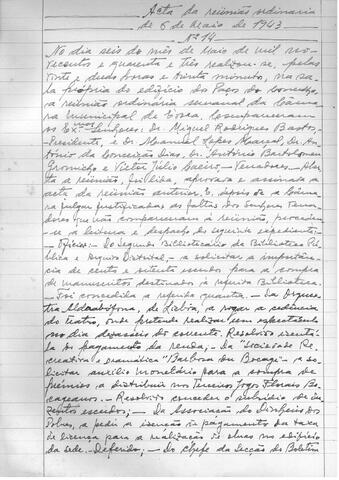 Acta da reunião ordinaria
de 6 de Maio de 1943
Nº 14
No dia seis do mês de Maio de mil no-
vecentos e quarenta e três realizou-se, pelas
vinte e duas horas e trinta minutos, na sa-
la própria do edificio dos Paços do Concelho,
a reunião ordinária semanal da Câma-
ra Municipal de Evora. Compareceram
os Ex.mos Senhores: Dr. Miguel Rodrigues Bastos-
Presidente, e Dr. Manuel Lopes Marçal, Dr. An-
tónio da Conceição Dias, Dr. António Bartolomeu
Gromicho e Victor Júlio - Vereadores - Aber-
ta a reunião, foi lida, aprovada e assinada a
acta da reunião anterior. E, depois de a Câma-
ra julgar justificadas as faltas dos Senhores Verea-
dores que não compareceram à reunião, procedeu-
se à leitura e despacho do seguinte expediente:-
- Ofícios: - Do Segundo Bibliotecário da Biblioteca Pú-
blica e Arquivo Distrital, - a solicitar a importân-
cia de cento e oitenta escudos para a compra
de manuscritos destinados à referida Biblioteca.
- Foi concedida a referida quantia. - Da Orques-
tra Aldrabófona, de Lisboa, a rogar a cedência
do teatro, onde pretende realizar um espectáculo
no dia dezasseis do corrente. Resolvido isentá-
la do pagamento da renda; - Da "Sociedade Re-
creativa e Dramática" "Barbosa du Bocage" - a so-
licitar auxilio monetário para a compra de
prémios a distribuir nos Terceiros Jogos Florais Bo-
cageanos. - Resolvido conceder o subsidio de
escudos; - Da Associação do
Pobres, a pedir a isenção do pagamento da taxa
de licença para a realização de obras no edificio
da sede. - Deferido, - Do Chefe da Secção do Boletim